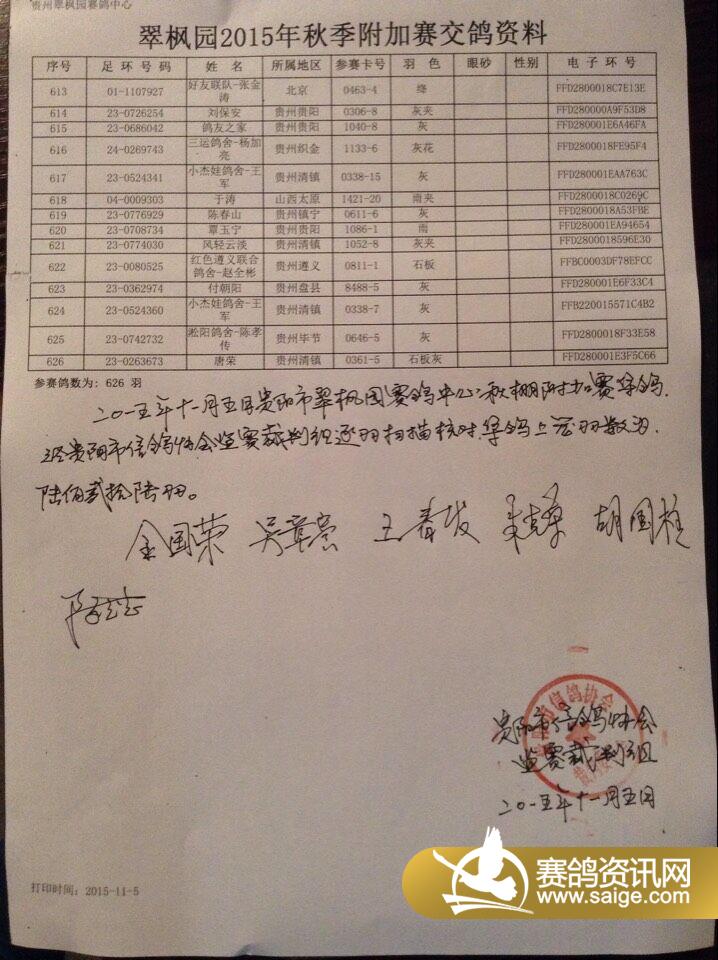 贵州翠枫园赛鸽中心
翠枫园2015年秋季附加赛交鸽资料
序号 足环号码 姓名 所属地区 参赛卡号 羽色 眼砂 性别 电子环号
613 01-1107927 好友联队-张金涛 北京 0463-4 绛 FFD2800018C7E13E
614 23-0726254 刘保安 贵州贵阳 0306-8 灰夹 FFD280000A9F53D8
615 23-0686042 鸽友之家 贵州贵阳 1040-8 灰 FFD280001E6A46FA
616 24-0269743 三运鸽舍-杨加亮 贵州织金 1133-6 灰花 FFD2800018FE95F4
617 23-0524341 小杰娃鸽舍-王军 贵州清镇 0338-15 灰 FFD280001EAA763C
618 04-0009303 于涛 山西太原 1421-20 雨夹 FFD2800018C0269C
619 23-0776929 陈春山 贵州镇宁 0611-6 灰 FFD2800018A53FBE
620 23-0708734 覃玉宁 贵州贵阳 1086-1 雨 FFD280001EA94654
621 23-0774030 风轻云淡 贵州清镇 1052-8 灰夹 FFD2800018596E30
622 23-0080525 红色遵义联合鸽舍-赵全彬 贵州遵义 0811-1 石板 FFBC0003DF78EFCC
623 23-0362974 付朝阳 贵州盘县 8488-5 灰 FFD280001E6F33C4
624 23-0524360 小杰娃鸽舍-王军 贵州清镇 0338-7 灰 FFB220015571C4B2
625 23-0742732 淞阳鸽舍-陈孝传 贵州毕节 0646-5 灰 FFD2800018F33E58
626 23-0263673 唐荣 贵州清镇 0361-5 石板灰 FFD280001E3F5C66
参赛鸽数为: 626 羽
二〇一五年十一月五日贵阳市翠枫园赛鸽中心秋棚附加赛集鸽,
经贵阳市信鸽协会监赛裁判组逐羽扫描核对,集鸽上笼羽数为
陆佰贰拾陆羽。
金国荣 吴章亮 王春发 胡国柱
贵阳市信鸽协会
监赛裁判组
二〇一五年十一月五日
打印时间: 2015-11-5
赛鸽资讯网
www.saige.com